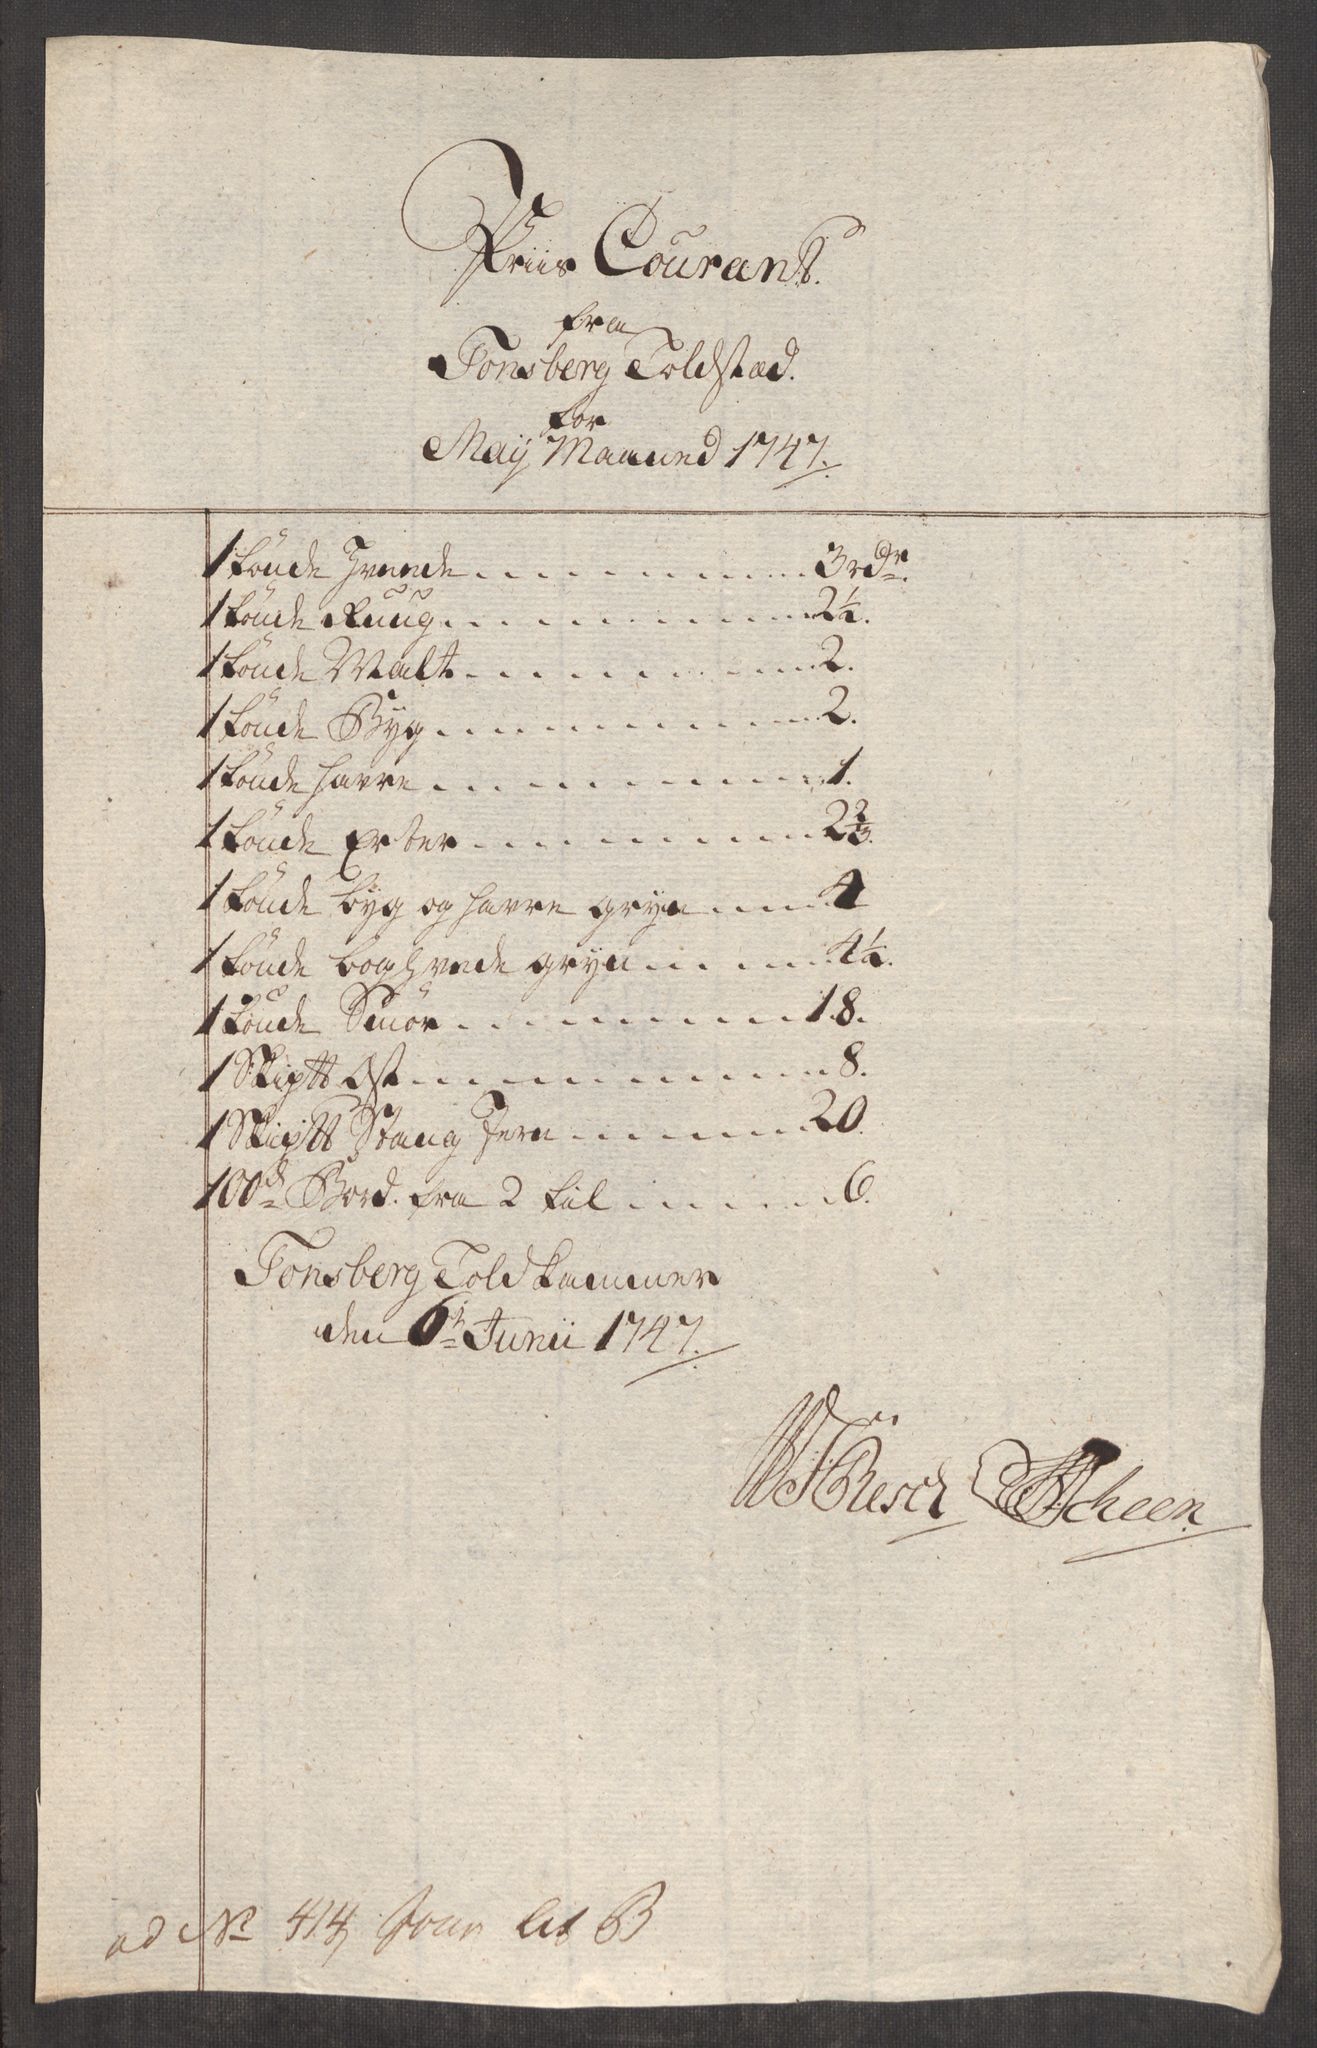 Priis Courant.
fra
Tonsberg Toldstæd.
for
Maij Maaned 1747.
1 tönde Hvede 3 rdr.
1 tönde Ruug 2½.
1 tönde Malt 2.
1 tönde Byg 2.
1 tönde havre 1.
1 tönde Erter 2⅔.
1 tönde byg og havre gryn 4
1 tönde boghvede gryn 4½.
1 tönde Smör 18.
1 Skiptt Ost 8.
1 Skiptt Stang Jern 20.
100d Bord. fra 2 til 6.
Tonsberg Told kammer
den 6t Junii 1747.
Rësch Scheen
ad No 414 Jour Lit B